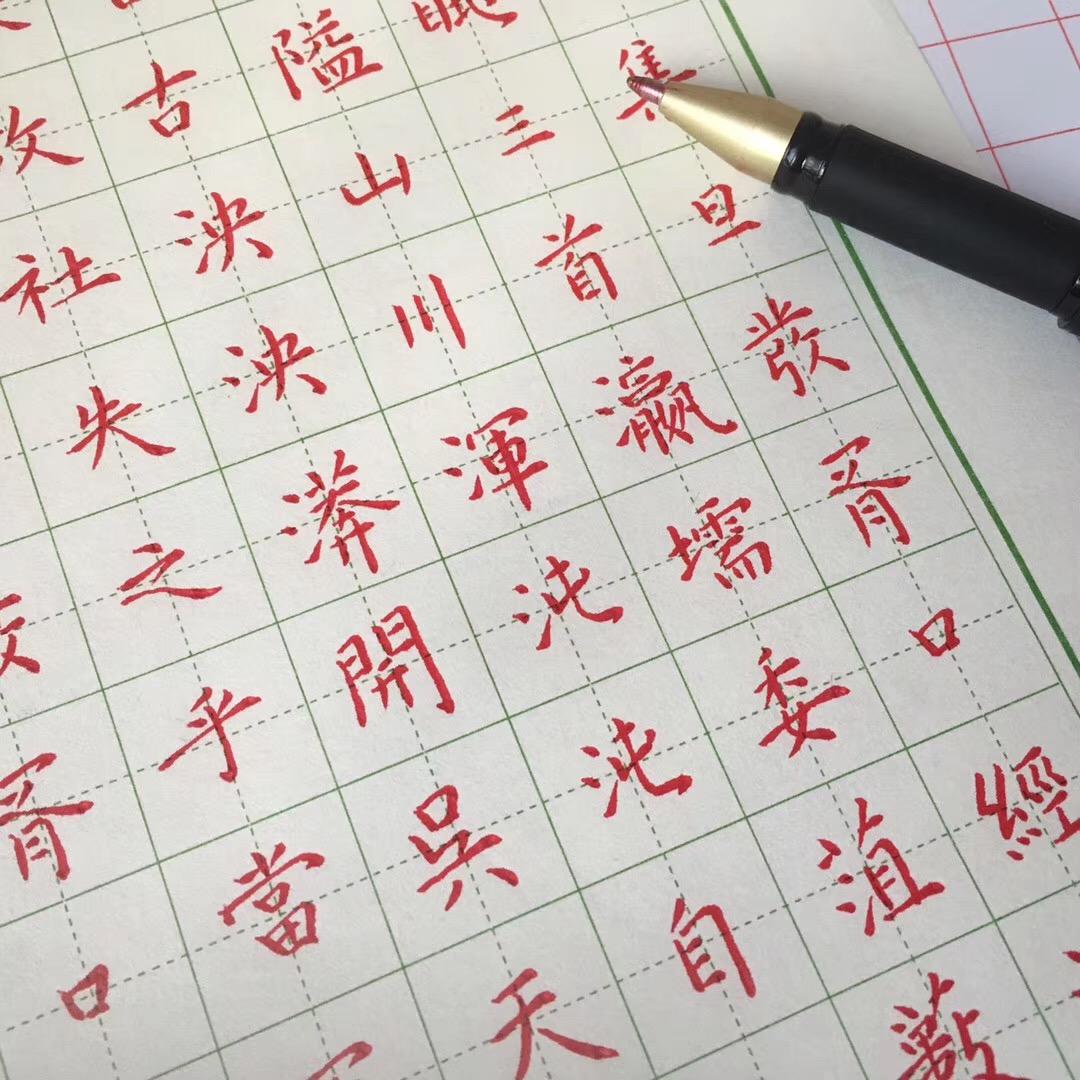 集旦發胥口經
三首瀛壖委藪
隘山川渾沌沌自
古泱泱漭開吳天
社失之乎當
胥口